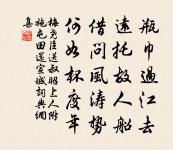 瓶巾過江去
遠托故人船
借問風濤勢
何如杯度年
梅堯臣送叔昭上人附
施屯田還宣城詞典網
集